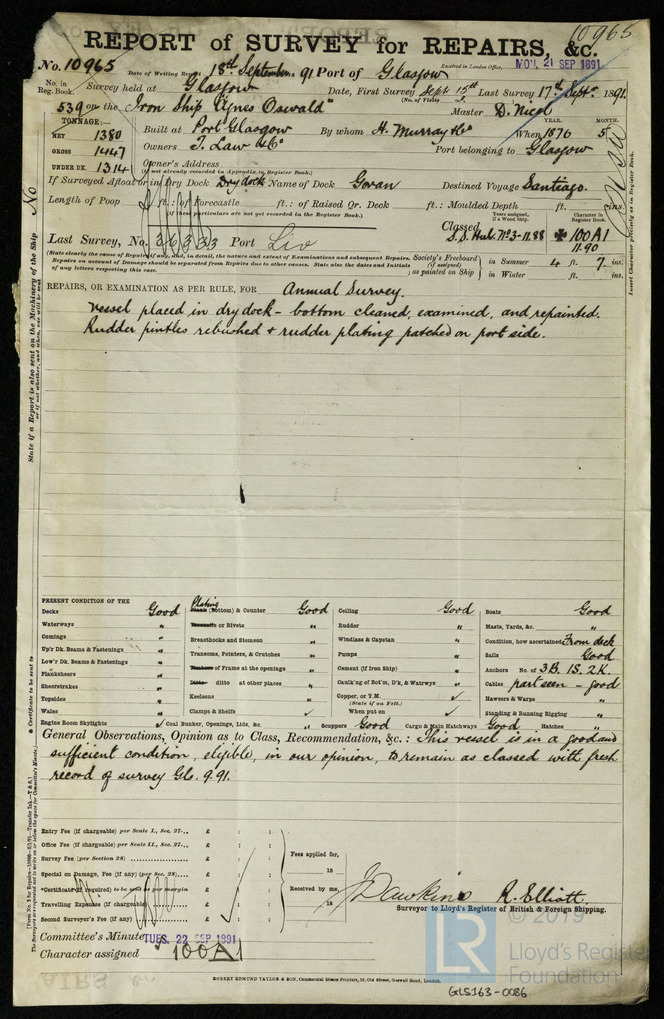 10965
REPORT of SURVEY for REPAIRS, &c.
No. 10965 Date of Writing Report 18th September. 91 Port of Glasgow Received in London Office, MON. 21 SEP 1891
No. in Reg. Book. Survey held at Glasgow Date, First Survey Sept 15th Last Survey 17th Septr 1891.
(No. of Visits 2.
539 on the Iron Ship "Agnes Oswald" Master D. Nicol
TONNAGE:— YEAR. MONTH.
NET 1380 Built at Port Glasgow By whom H. Murray & Co When 1876 5
GROSS 1447 Owners T. Law & Co Port belonging to Glasgow
UNDER DK. 1314 Owner's Address
(if not already recorded in Appendix to Register Book.)
If Surveyed Afloat or in Dry Dock Dry dock Name of Dock Govan Destined Voyage Santiago.
Length of Poop ft. : of Forecastle ft. : of Raised Qr. Deck ft. : Moulded Depth ft. ins.
(if these particulars are not yet recorded in the Register Book.)
Years assigned, if a Wood Ship. Character in Register Book.
Last Survey, No. 36333 Port Liv Classed S.S. Hul. No 3-11.88 ✠ 100A1
11.90
(State clearly the cause of Repairs if any, and, in detail, the nature and extent of Examinations and subsequent Repairs. Repairs on account of Damage should be separated from Repairs due to other causes. State also the dates and Initials of any letters respecting this case.
Society's Freeboard (if assigned) as painted on Ship } in Summer 4 ft. 7. ins.
in Winter ft. ins.
REPAIRS, OR EXAMINATION AS PER RULE, FOR Annual Survey.
Vessel placed in dry dock – bottom cleaned, examined, and repainted.
Rudder pintles rebushed & rudder plating patched on port side.
State if a Report is also sent on the Machinery of the Ship No
or if not whether, and when, one will be sent
Insert Character precisely as in Register Book.
PRESENT CONDITION OF THE
Decks Good
Waterways "
Comings "
Up'r Dk. Beams & Fastenings "
Low'r Dk. Beams & Fastenings "
Planksheers "
Sheerstrakes "
Topsides "
Wales "
Engine Room Skylights ✓
Plating
Plank (Bottom) & Counter Good
Treenails or Rivets "
Breasthooks and Stemson "
Transoms, Pointers, & Crutches "
Timbers of Frame at the openings "
Ditto ditto at other places "
Keelsons "
Clamps & Shelfs ✓
Coal Bunker, Openings, Lids, &c. ✓
Ceiling Good
Rudder "
Windlass & Capstan "
Pumps "
Cement (if Iron Ship) "
Caulk'ng of Bot'm, D'k, & Watrwys "
Copper, or Y.M. ✓
(State if on Felt.)
When put on ✓
Scuppers Good Cargo & Main Hatchways Good
Boats Good
Masts, Yards, &c. "
Condition, how ascertained From deck
Sails Good
Anchors No. of 3B. 1S. 2K.
Cables part seen – good
Hawsers & Warps "
Standing & Running Rigging "
Hatches "
General Observations, Opinion as to Class, Recommendation, &c.: This vessel is in a good and
sufficient condition, eligible, in our opinion, to remain as classed with fresh
record of survey Gls. 9.91.
* Certificate to be sent to
Entry Fee (if chargeable) per Scale I., Sec. 27... £ : :
Office Fee (if chargeable) per Scale II., Sec. 27... £ : :
Survey Fee (per Section 28) £ : :
Special on Damage, Fee (if any) (per Sec. 28) £ : :
*Certificate (if required) to be sent as per margin £ : :
Travelling Expenses (if chargeable) £ : :
Second Surveyor's Fee (if any) £ : :
Fees applied for,
18
Received by me,
18
J Dawkins R. Elliott
Surveyor to Lloyd's Register of British & Foreign Shipping.
Committee's Minute TUES. 22 SEP 1891
Character assigned 100A1
ROBERT EDMUND TAYLOR & SON, Commercial Steam Printers, 19, Old Street, Goswell Road, London.
© 2019
LR Lloyd's Register
Foundation
GLS163-0086